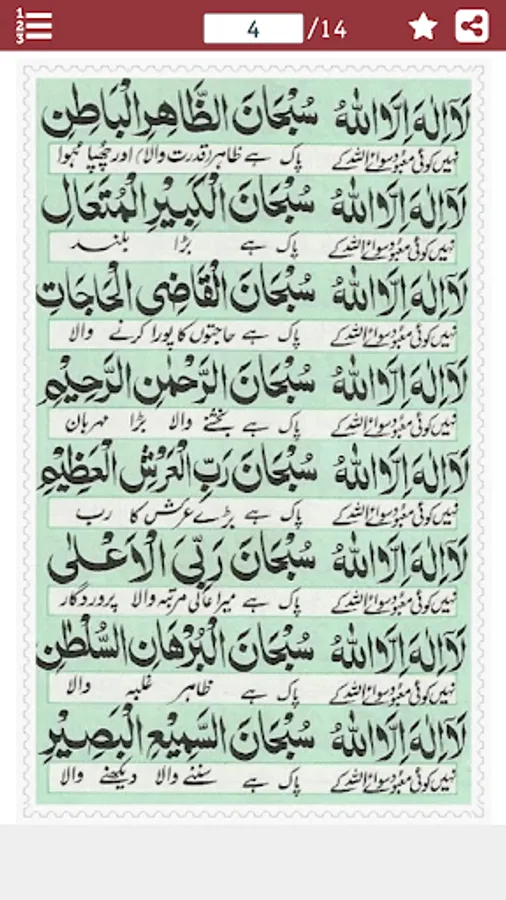 1 2 3
4 /14
لَآ اِلٰهَ اِلَّا اللهُ سُبْحَانَ الظَّاهِرِ الْبَاطِنِ
نہیں کوئی معبود سوائے اللہ کے پاک ہے ظاہر (قدرت والا) اور چھپا ہوا
لَآ اِلٰهَ اِلَّا اللهُ سُبْحَانَ الْكَبِيْرِ الْمُتَعَالِ
نہیں کوئی معبود سوائے اللہ کے پاک ہے بڑا بلند
لَآ اِلٰهَ اِلَّا اللهُ سُبْحَانَ الْقَاضِى الْحَاجَاتِ
نہیں کوئی معبود سوائے اللہ کے پاک ہے حاجتوں کا پورا کرنے والا
لَآ اِلٰهَ اِلَّا اللهُ سُبْحَانَ الرَّحْمٰنِ الرَّحِيْمِ
نہیں کوئی معبود سوائے اللہ کے پاک ہے بخشنے والا بڑا مہربان
لَآ اِلٰهَ اِلَّا اللهُ سُبْحَانَ رَبِّ الْعَرْشِ الْعَظِيْمِ
نہیں کوئی معبود سوائے اللہ کے پاک ہے بڑے عرش کا رب
لَآ اِلٰهَ اِلَّا اللهُ سُبْحَانَ رَبِّىَ الْاَعْلٰى
نہیں کوئی معبود سوائے اللہ کے پاک ہے میرا عالی مرتبہ والا پروردگار
لَآ اِلٰهَ اِلَّا اللهُ سُبْحَانَ الْبُرْهَانِ السُّلْطٰنِ
نہیں کوئی معبود سوائے اللہ کے پاک ہے ظاہر غلبہ والا
لَآ اِلٰهَ اِلَّا اللهُ سُبْحَانَ السَّمِيْعِ الْبَصِيْرِ
نہیں کوئی معبود سوائے اللہ کے پاک ہے سننے والا دیکھنے والا